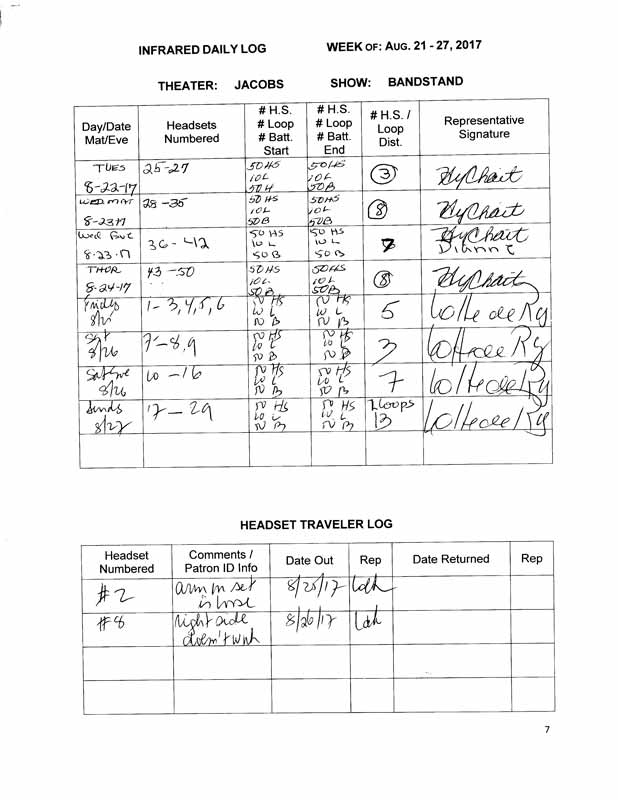 INFRARED DAILY LOG WEEK OF: AUG. 21 - 27, 2017
THEATER: JACOBS SHOW: BANDSTAND
Day/Date Mat/Eve Headsets Numbered # H.S. # Loop # Batt. Start # H.S. # Loop # Batt. End # H.S. / Loop Dist. Representative Signature
TUES 8-22-17 25-27 50HS 10L 50H 50HS 10L 50B 3
WED MAT 8-23-17 28-35 50HS 10L 50B 50HS 10L 50B 8
Wed Eve 8-23-17 36-42 50 HS 10 L 50 B 50 HS 10 L 50 B 7
THUR 8-24-17 43-50 50HS 10L 50B 50HS 10L 50B 8
8/25 1-3,4,5,6 50 HS 10 L 50 B 50 HS 10 L 50 B 5
Sat 8/26 7-8,9 50 HS 10 L 50 B 50 HS 10 L 50 B 3
Sat Eve 8/26 10-16 50 HS 10 L 50 B 50 HS 10 L 50 B 7
8/27 17-29 50 HS 10 L 50 B 50 HS 10 L 50 B Loops 13
HEADSET TRAVELER LOG
Headset Numbered Comments / Patron ID Info Date Out Rep Date Returned Rep
#2 arm on set is loose 8/25/17 ldh
#8 right side doesn't work 8/26/17 ldh
7